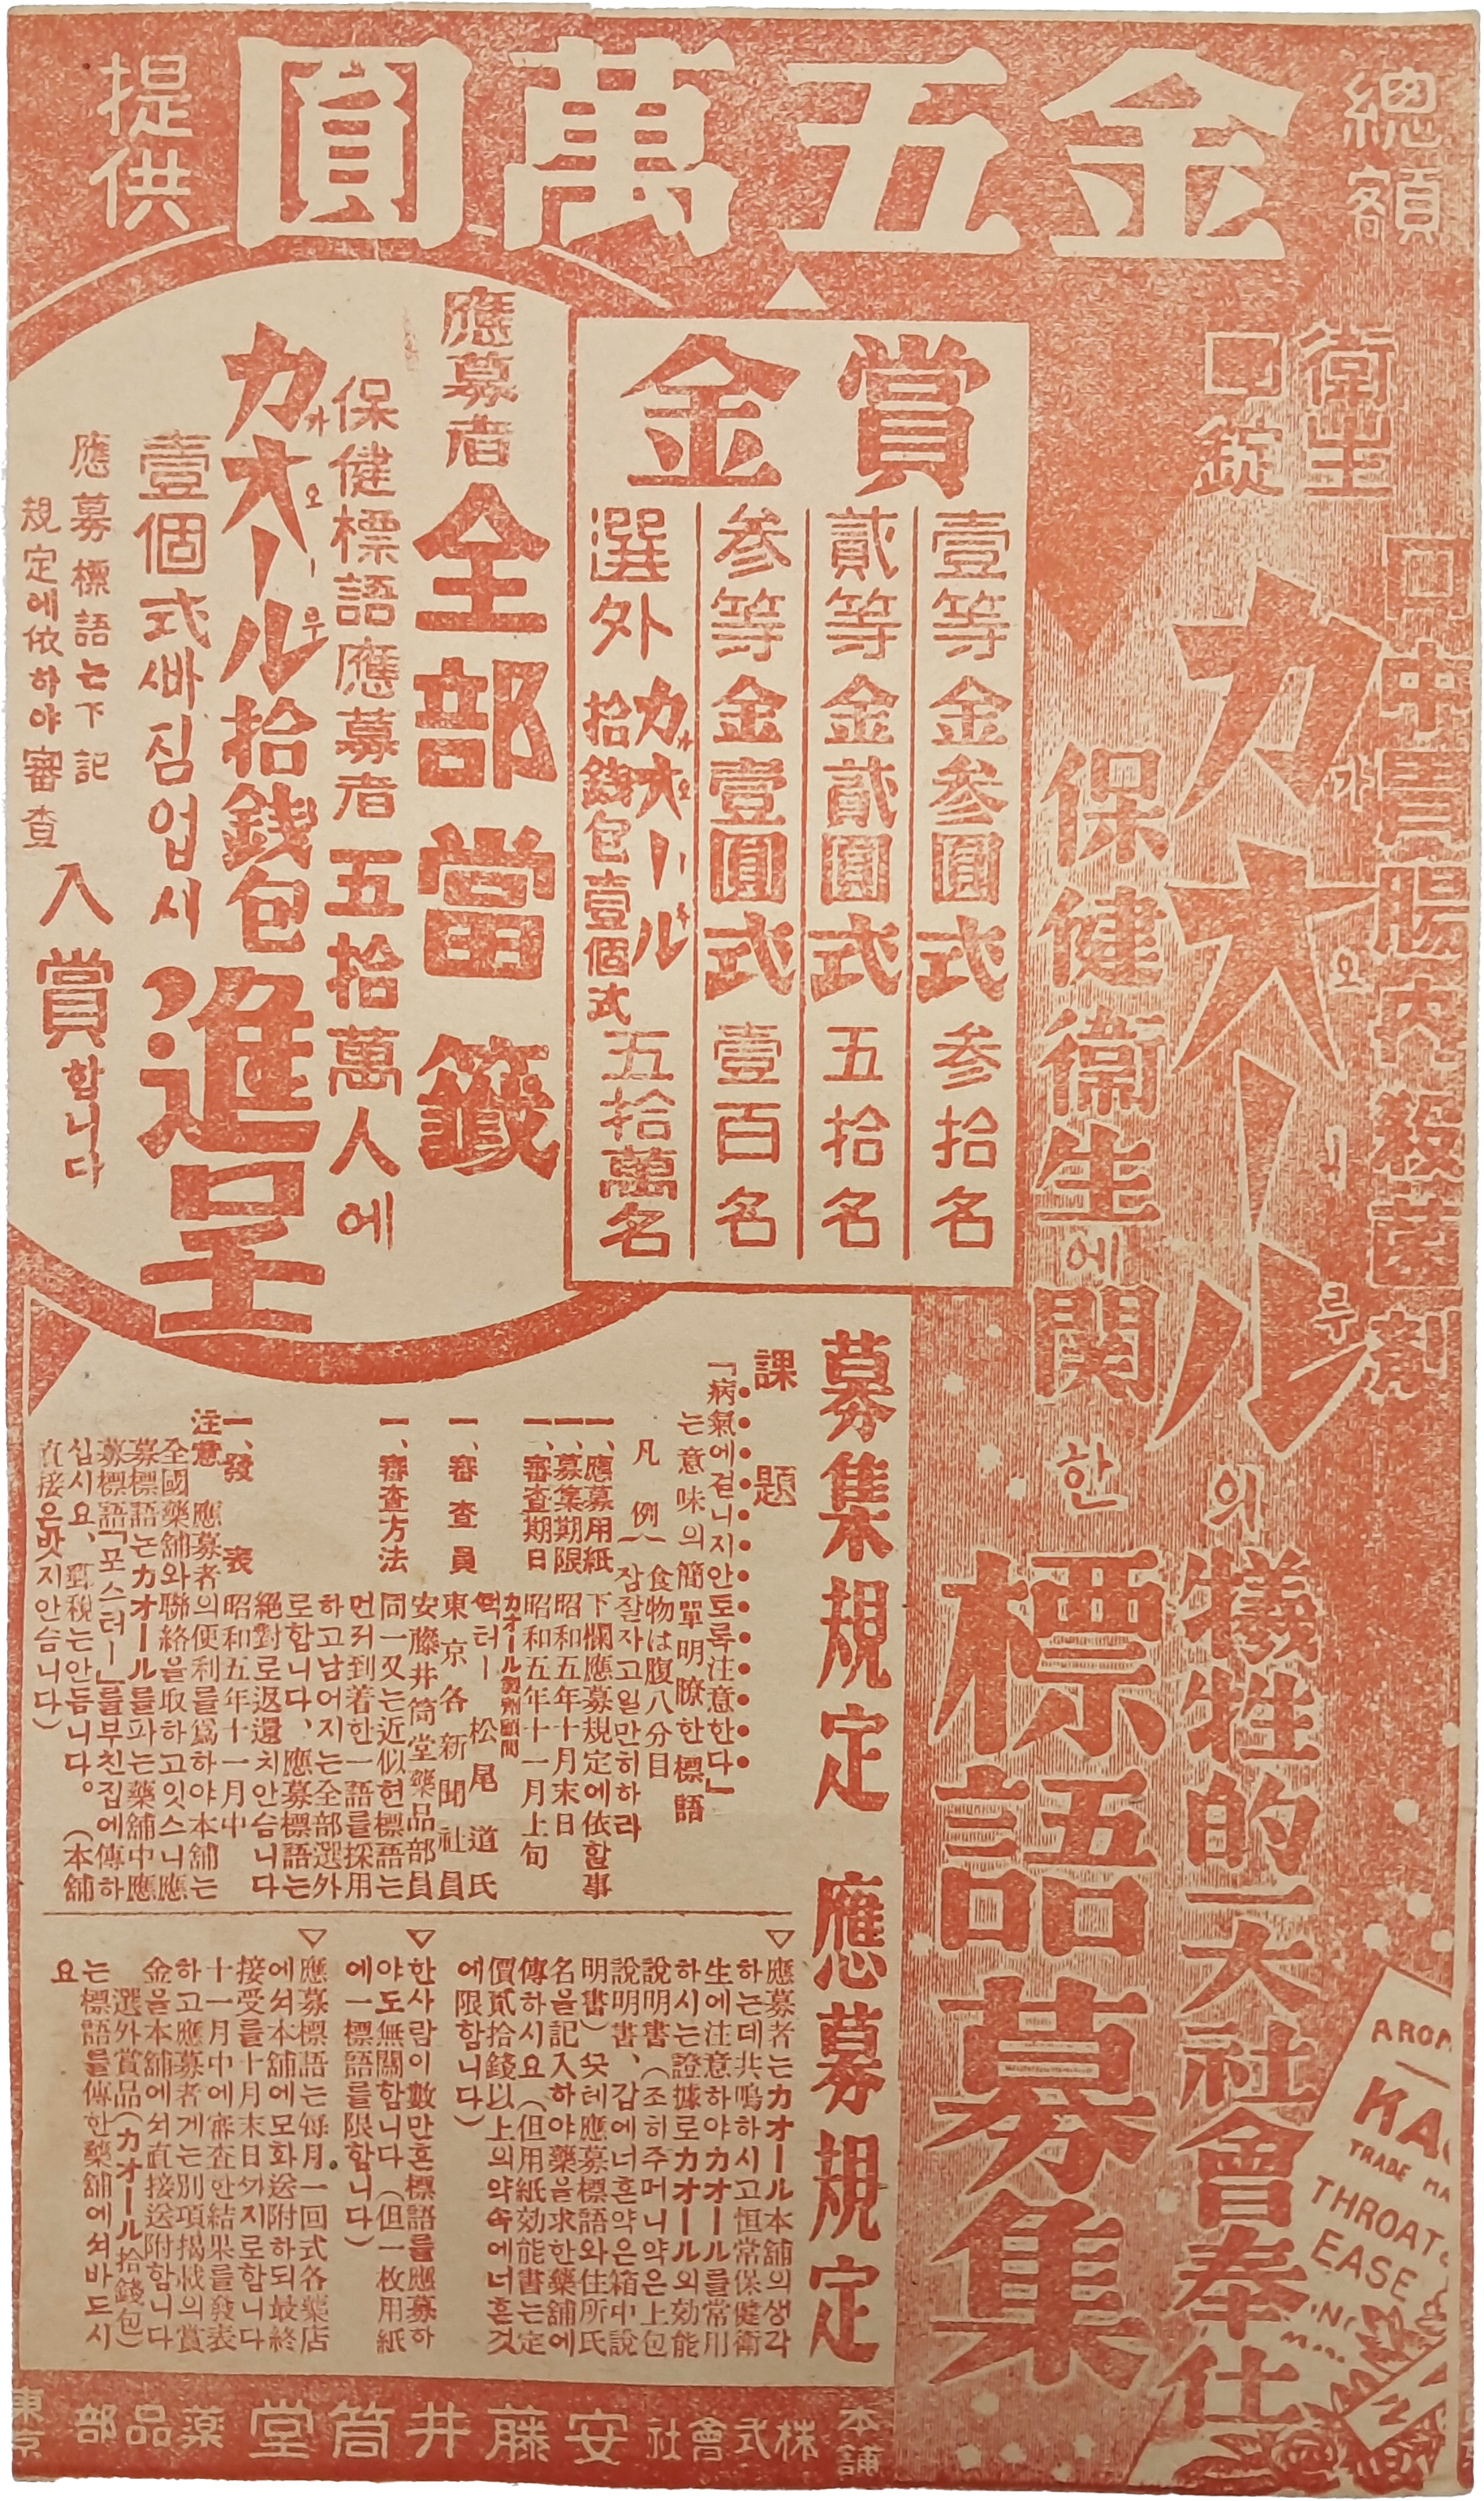 總額
金五萬圓
提供
口中胃腸內殺菌劑
衛生
口錠
カオール
가오ㅣ루
의犠牲的一大社會奉仕
保健衛生에関한標語募集
賞金
壹等金参圓式参拾名
貳等金貳圓式五拾名
参等金壹圓式壹百名
選外カオール拾錢包壹個式五拾萬名
應募者全部當籤
保健標語應募者五拾萬人에
カオール拾錢包
가오ㅣ루
壹個式빠짐업시進呈
應募標語는下記
規定에依하야審査
入賞합니다
募集規定
課題
「病氣에걷니지안토록注意한다」
는意味의簡單明瞭한標語
凡例 一食物は腹八分目
一잠잘자고일만히하라
一、應募用紙 下欄應募規定에依할事
一、募集期限 昭和五年十月末日
一、審査期日 昭和五年十一月上旬
一、審査員
カオール製劑顧問
덕터ー 松尾道氏
東京各新聞社員
安藤井筒堂藥品部員
一、審査方法 同一又는近似헌標語는
먼저到着한一語를採用
하고남어지는全部選外
로합니다、應募標語는
絕對로返還치안슴니다
一、發表 昭和五年十一月中
注意 應募者의便利를爲하야本舖는
全國藥舖와聯絡을取하고잇스니應
募標語는カオール를파는藥舖中應
募標語「포스터ー」를부친집에傳하
십시요、郵稅는안듬니다。(本舖
直接은밧지안슴니다)
應募規定
▽應募者는カオール本舖의생각
하는데共鳴하시고恒常保健衛
生에注意하야カオール를常用
하시는證據로カオール의効能
說明書(조히주머니약은上包
說明書、갑에너흔약은箱中說
明書)뜻레應募標語와住所氏
名을記入하야藥을求한藥舖에
傳하시요(但用紙効能書는定
價貳拾錢以上의약속에너흔것
에限함니다)
▽한사람이數만흔標語를應募하
야도無關합니다(但一枚用紙
에一標語를限합니다)
▽應募標語는每月一回式各藥店
에서本舖에모화送附하되最終
接受를十月末日까지로합니다
十一月中에審査한結果를發表
하고應募者게는別項揭載의賞
金을本舖에서直接送附합니다
選外賞品(カオール拾錢包)
는標語를傳한藥舖에서바드시
요
AROM
KAO
TRADE MA
THROAT
EASE
本舖
株式會社安藤井筒堂薬品部
東京